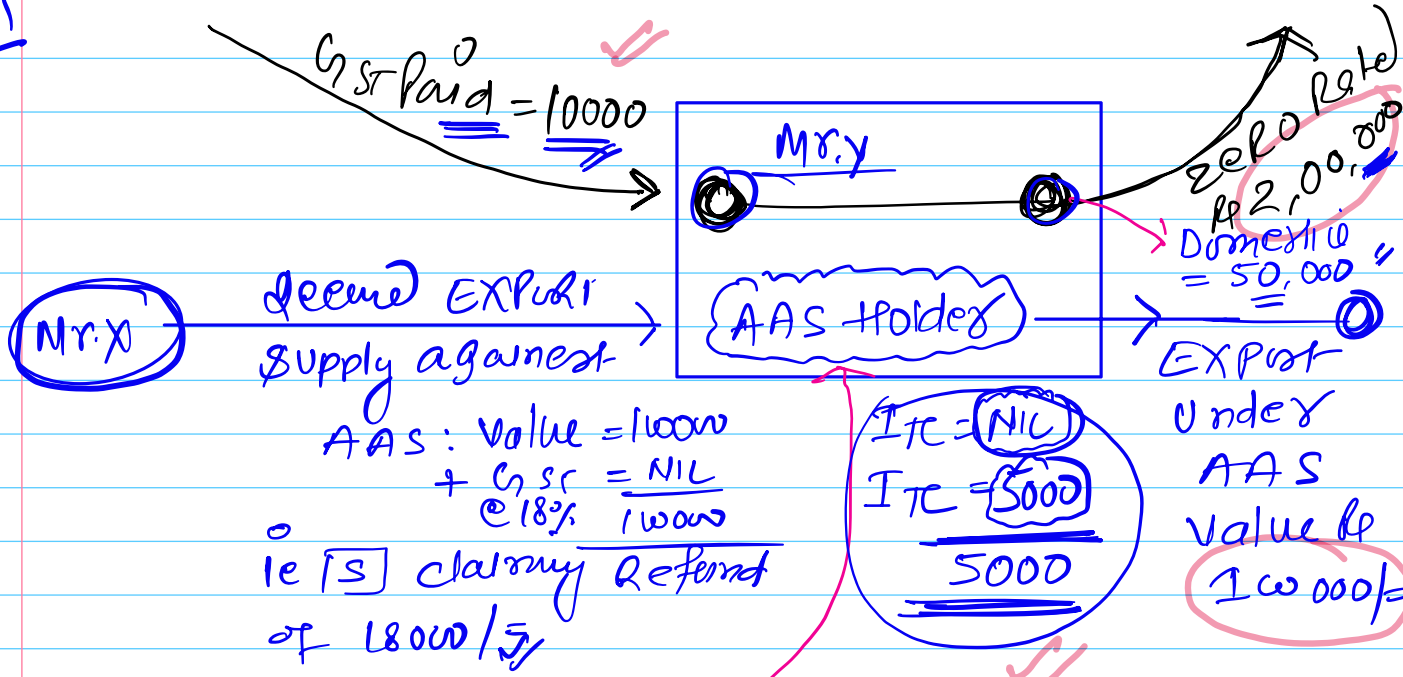 GST Paid = 10000
Mr.y
Zero Rated
Rp 2,00,000
Domestic
= 50,000
Mr.X
Deemed EXPort
Supply against
AAS Holder
AAS : Value = 100000
+ GST = NIL
@ 18% 100000
ie [S] claiming Refund
of 18000/-
ITC = NIL
ITC = 5000
5000
EXPort
Under
AAS
Value Rp
100000/=